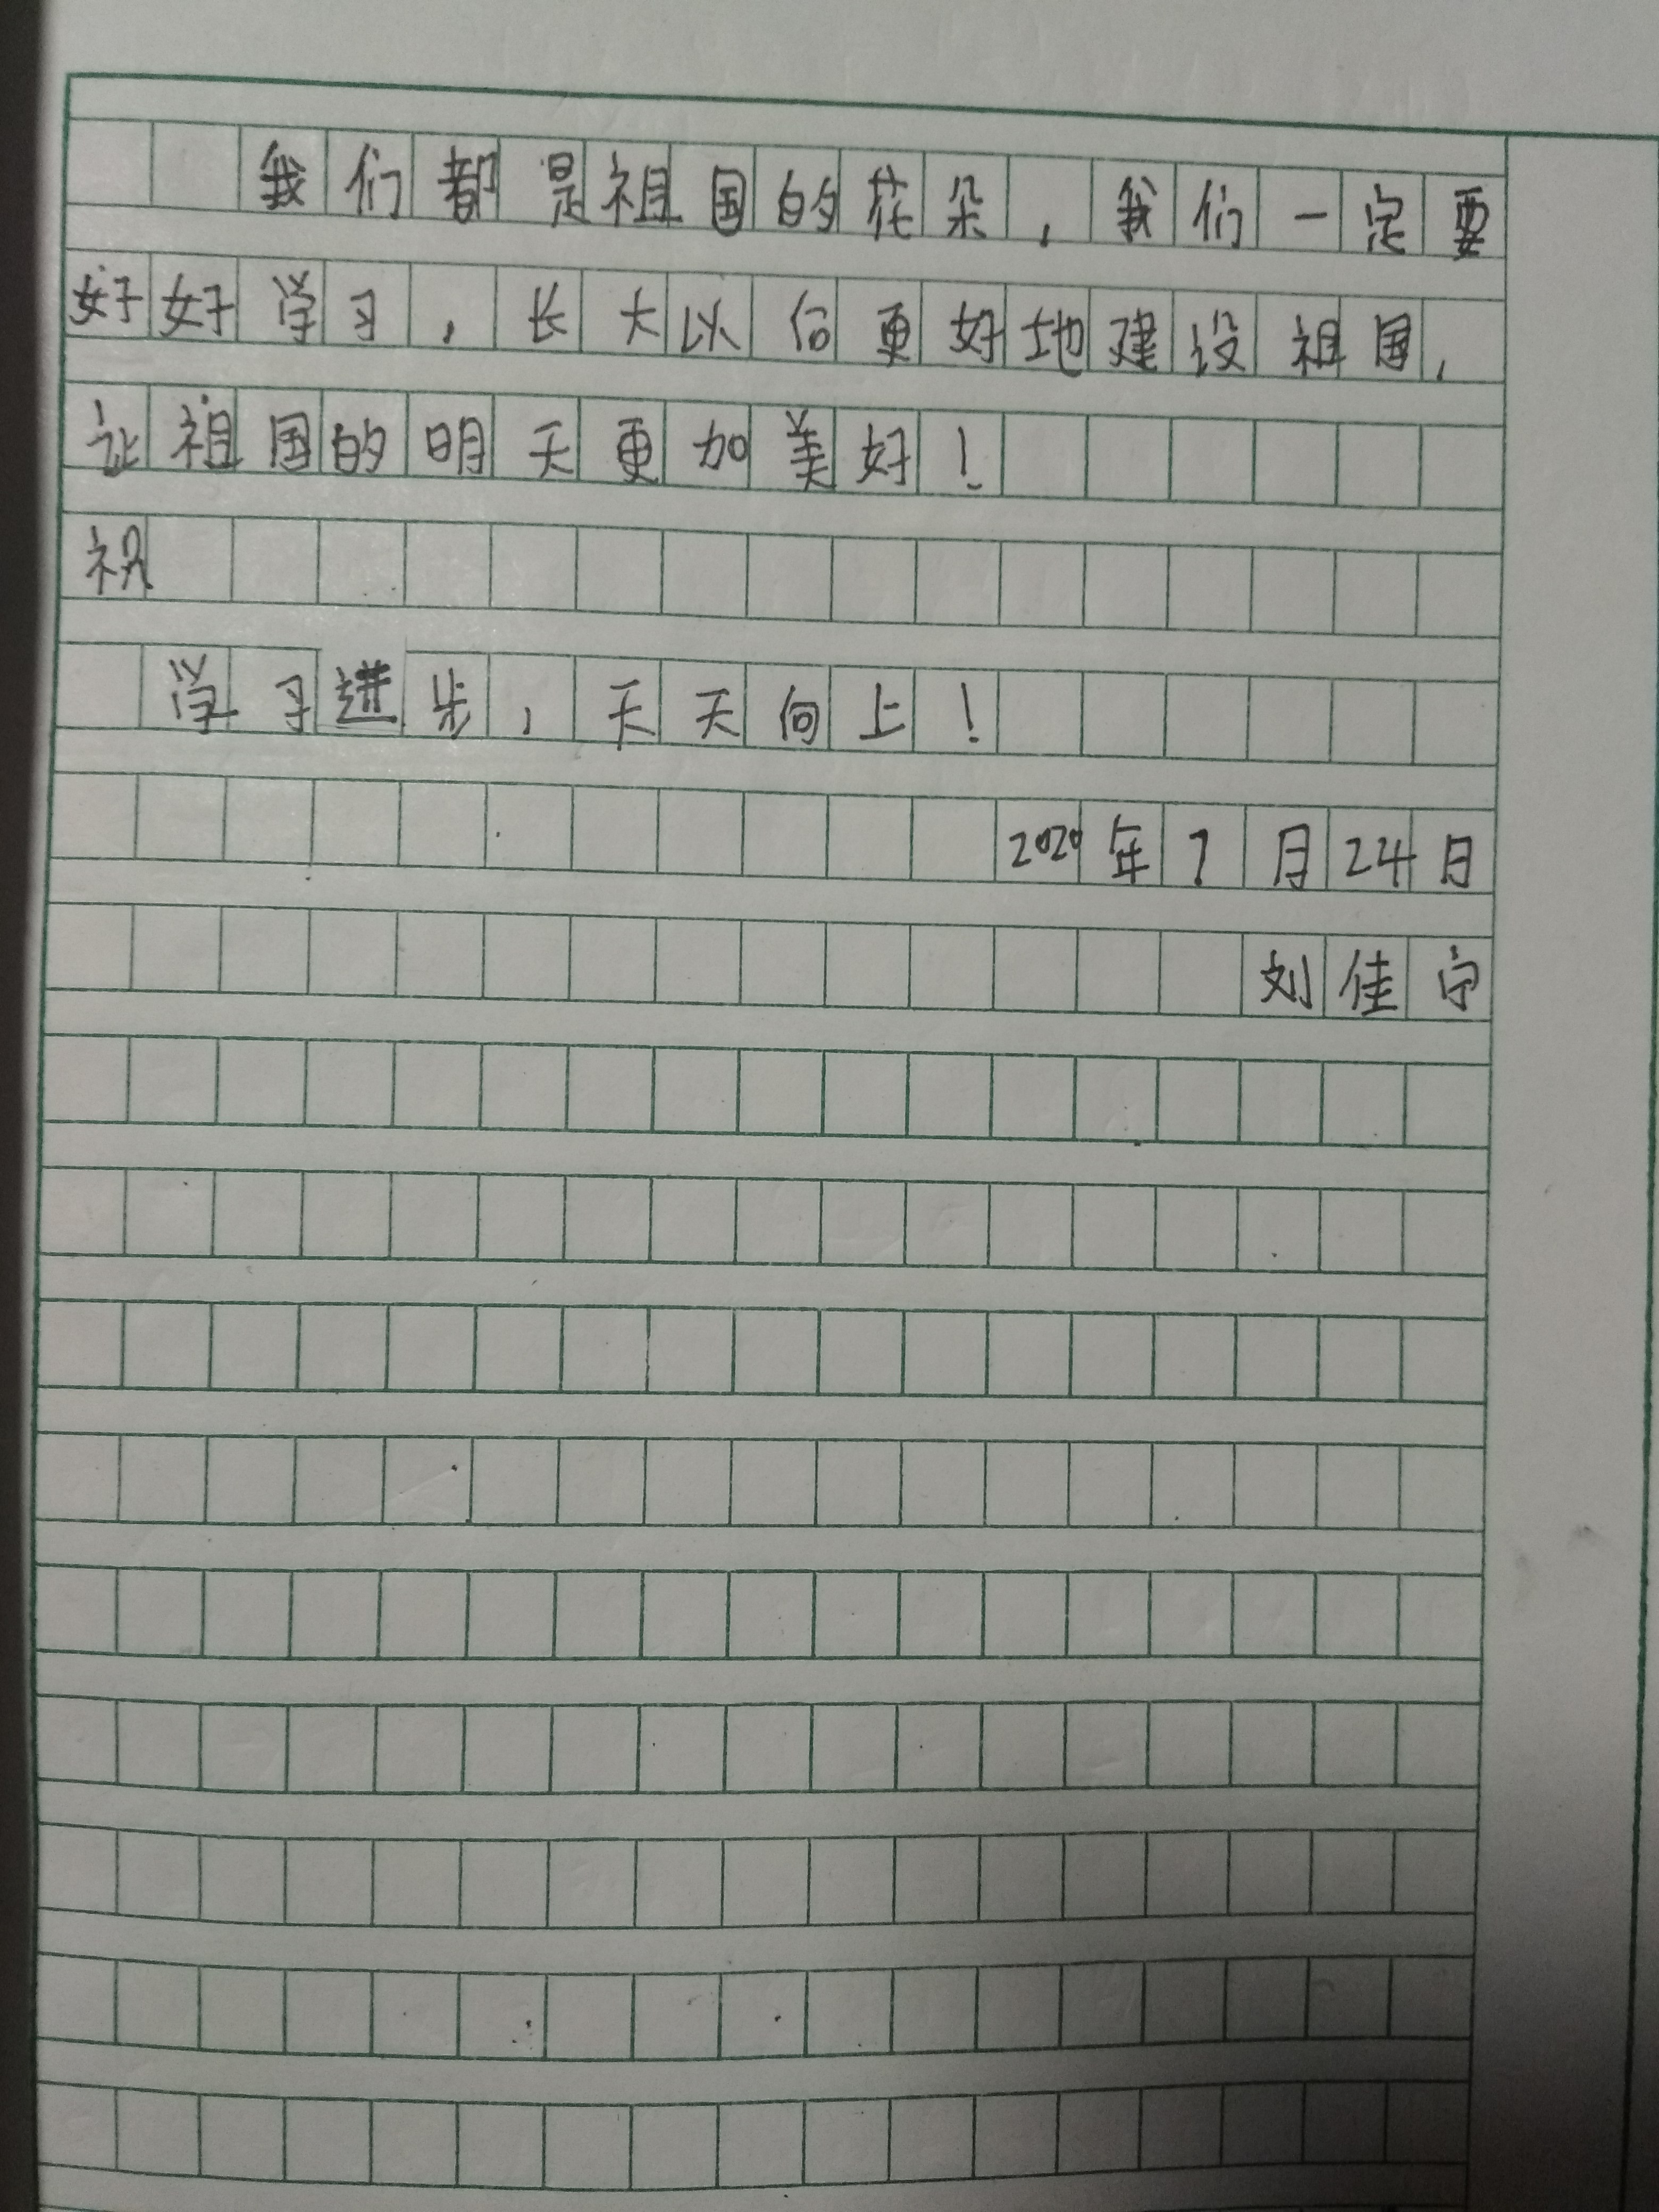 我们都是祖国的花朵,我们一定要
好好学习,长大以后更好地建设祖国,
让祖国的明天更加美好!
祝
学习进步,天天向上!
2020年7月24日
刘佳宁